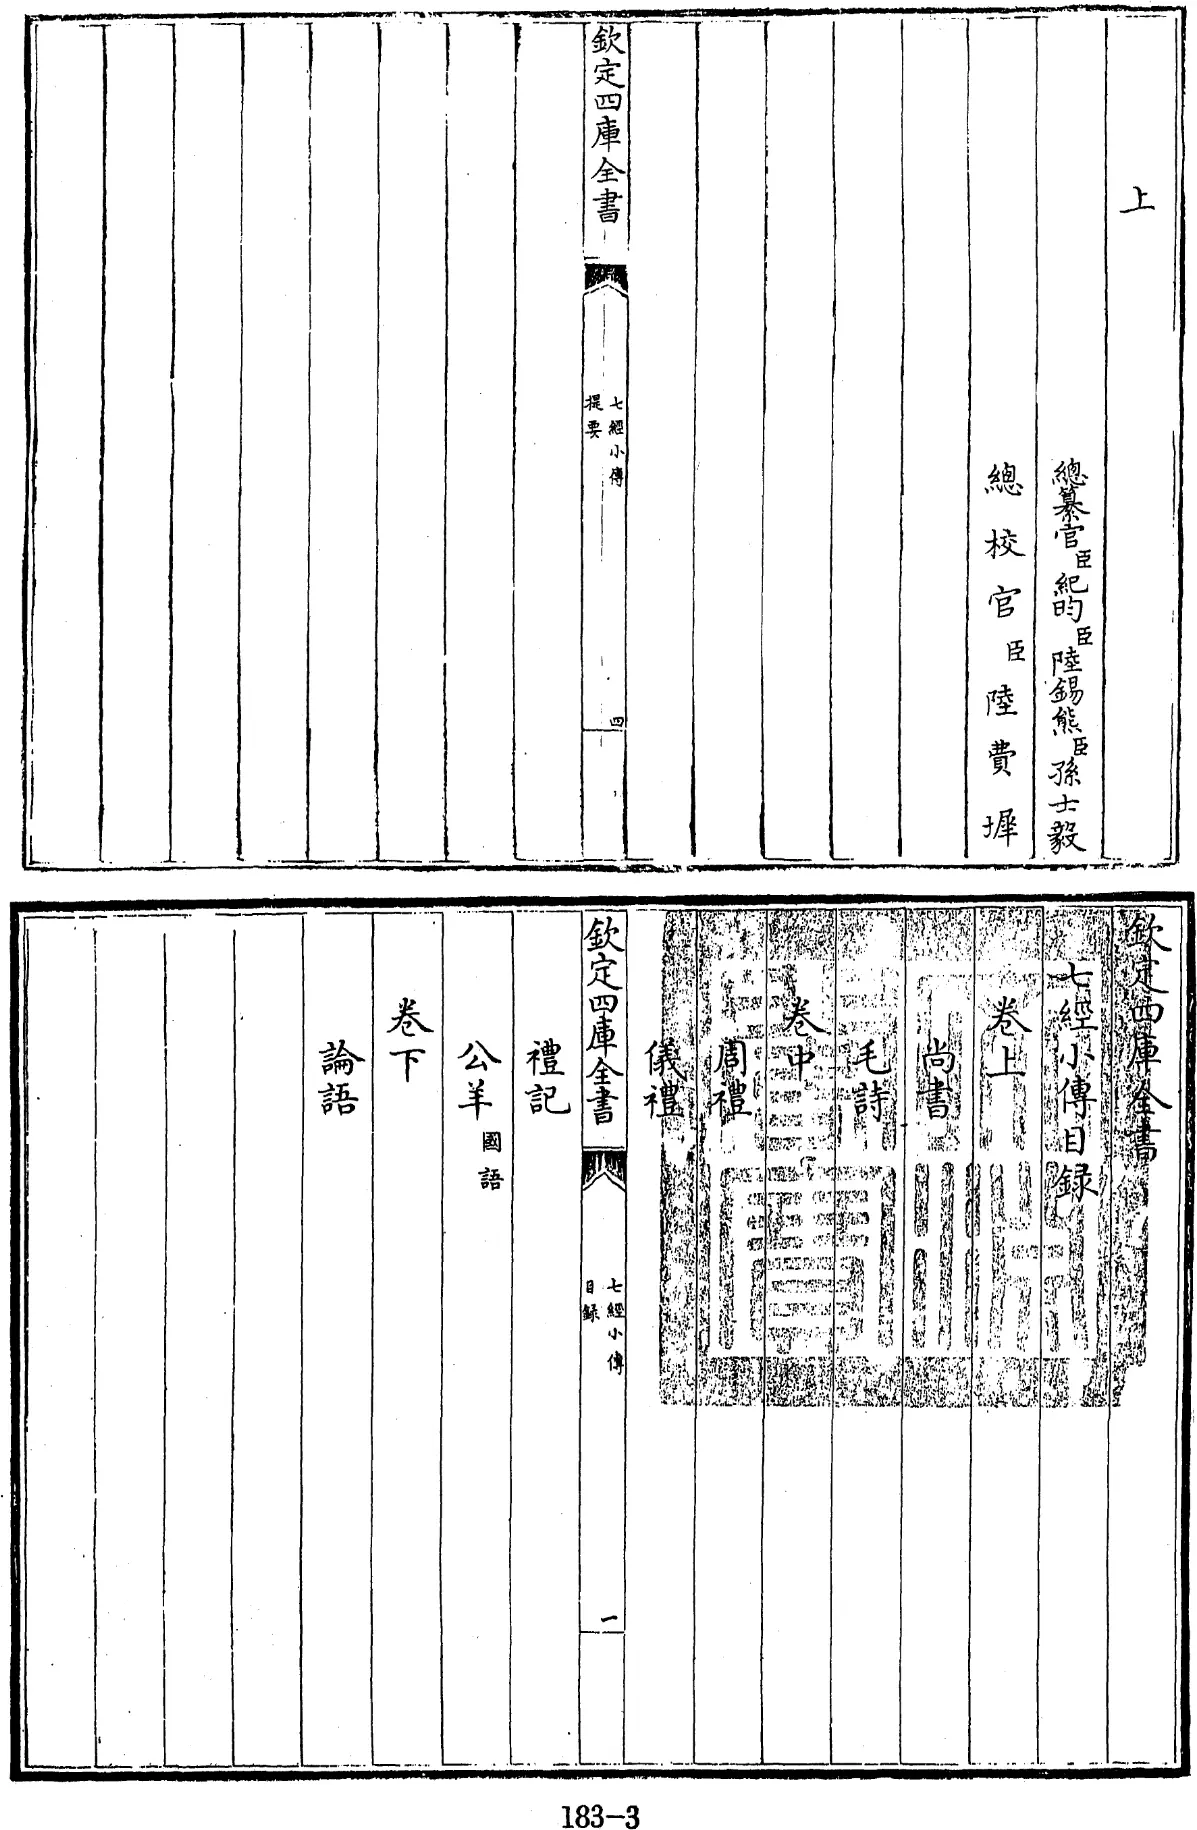 上
總纂官臣紀昀臣陸錫熊臣孫士毅
總校官臣陸費墀
欽定四庫全書
七經小傳
提要
四
欽定四庫全書
七經小傳目録
卷上
尚書
毛詩
卷中
周禮
儀禮
欽定四庫全書
七經小傳
目録
一
禮記
公羊國語
卷下
論語
183-3